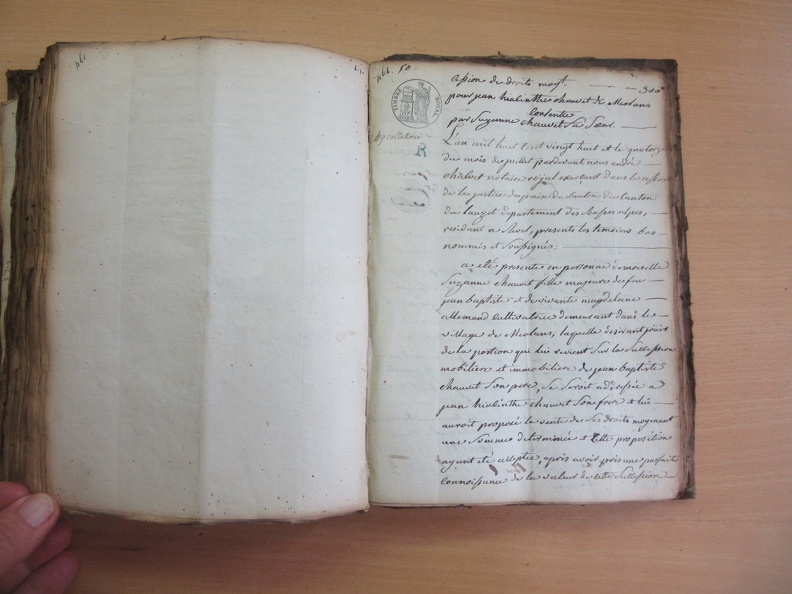 461
461. 50.
TIMBRE ROYAL
R
Cession de droits moyt. — 300f
pour jean hiabinthe chauvet de Méolans
consentie
par Suzanne chauvet Sa Sœur. —
bg collationné
L'an mil huit cent vingt huit et le quatorze
du mois de juillet pardevant nous andré
chabert notaire royal exerçant dans le ressort
de la justice de paix du canton
du lauzet département des basses alpes,
résidant a , présents les témoins bas
nommés et Soussignés: —
a été présente en personne demoiselle
Suzanne chauvet fille majeure de feu
jean baptiste et de vivante magdeleine —
allemand cultivatrice demeurant dans le —
village de Méolans, laquelle désirant jouir
de la portion qui lui revient Sur la Succession
mobiliere et immobiliere de jean baptiste
chauvet Son pere, Se Seroit addressée a
jean hiabinthe chauvet Son frere et lui —
auroit proposé la vente de Ses droits moyenant
une Somme determinée et cette proposition
ayant été acceptée, après avoir pris une parfaite
connoissance de la valeur de cette Succession —